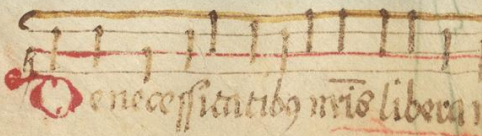 De necessitatibꝯ nr̄is libera